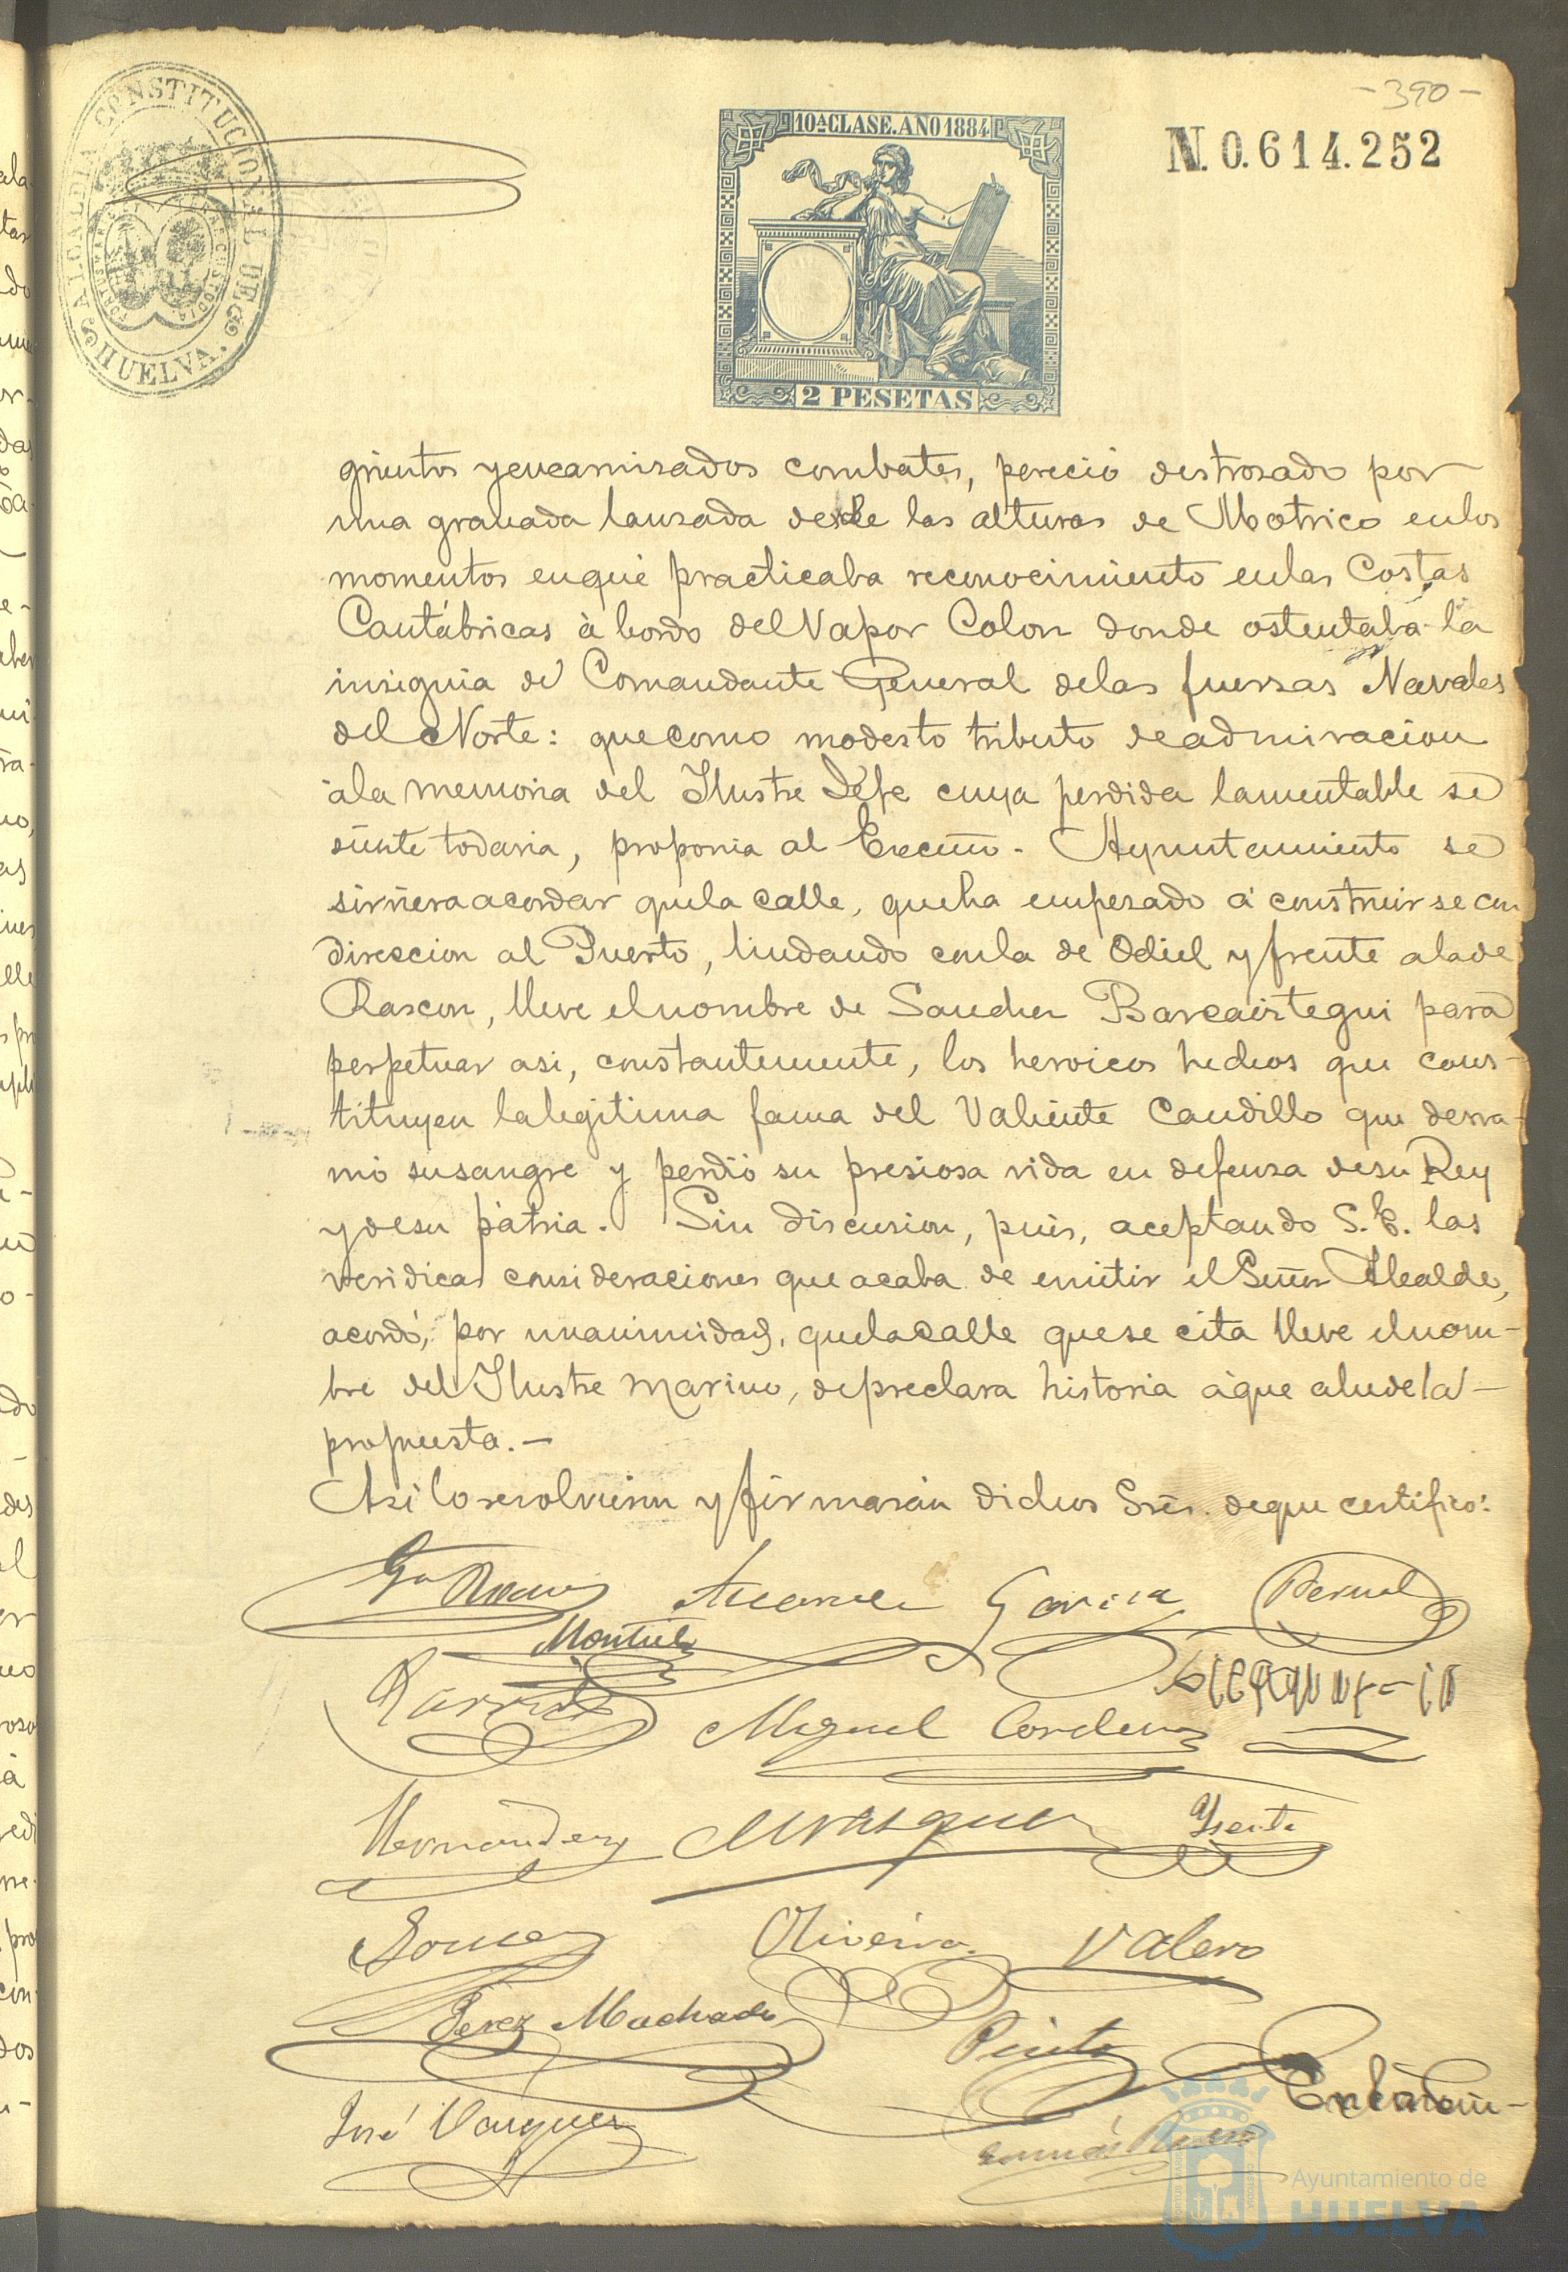 - 390 -
ALCALDIA CONSTITUCIONAL DE
HUELVA.
10ª CLASE. AÑO 1884
N. 0.614.252
2 PESETAS
grientos y encarnisados combates, pereció destrosado por
una granada lansada desde las alturas de Motrico en los
momentos en que practicaba reconocimiento en las Costas
Cantábricas à bordo del Vapor Colon donde ostentaba la
insignia de Comandante General de las fuersas Navales
del Norte: que como modesto tributo de admiracion
à la memoria del Ilustre Jefe cuya perdida lamentable se
siente todavia, proponia al Excmo. Ayuntamiento se
sirviera acordar que la calle, que ha empesado á construirse con
direccion al Puerto, lindando con la de Odiel y frente a la de
Rascon, lleve el nombre de Sanchez Barcaiztegui para
perpetuar asi, constantemente, los heroicos hechos que cons-
tituyen la legitima fama del Valiente Caudillo que derra-
mó su sangre y perdió su presiosa vida en defensa de su Rey
y de su pàtria. Sin discusion, pues, aceptando S.E. las
veridicas consideraciones que acaba de emitir el Señor Alcalde,
acordó, por unanimidad, que la calle que se cita lleve el nom-
bre del Ilustre marino, de preclara historia à que alude la
propuesta.—
Asi lo resolvieron y firmarán dichos Sres. de que certifico:
García Bernal
Montiel
Miguel Cordero
Hernandez Vazquez
Gomez Oliveira Valero
Perez Machado Pinto
José Vazquez
Ayuntamiento de
HUELVA